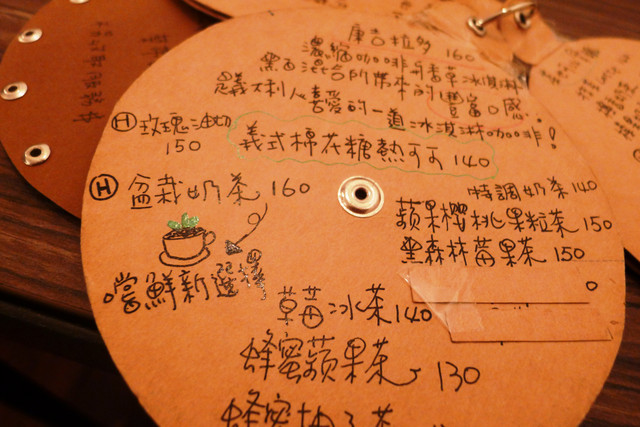 康吉拉多 160
濃縮咖啡與香草冰淇淋
黑白混合所帶來的豐富口感!
是義大利人喜愛的一道冰淇淋咖啡!
Ⓗ玫瑰油切
150
義式棉花糖熱可可 140
Ⓗ 盆栽奶茶 160
嚐鮮新選擇
特調奶茶 140
蘋果櫻桃果粒茶 150
黑森林莓果茶 150
0
草莓冰茶 140
蜂蜜蘋果茶 130
蜂蜜柚子茶